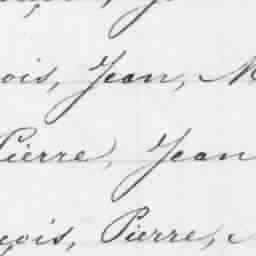 ois, Jean, M
Pierre, Jean
çois, Pierre,